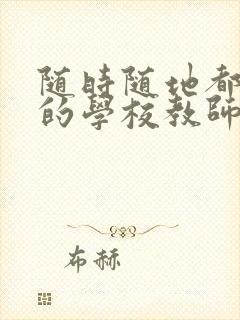 随時随地都
的學校教師
布赫